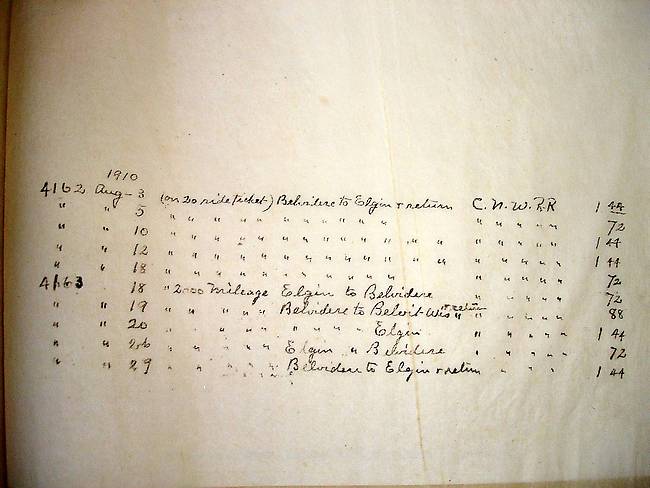 1910
4162 Aug - 3 (on 20 ride ticket) Belvidere to Elgin + return C. N. W. R R 1 44
" " 5 " " " " " " " " " " " " " " 72
" " 10 " " " " " " " " " " " " " " " " 1 44
" " 12 " " " " " " " " " " " " " " " " 1 44
" " 18 " " " " " " " " " " " " " " 72
4163 " 18 " 2000 mileage Elgin to Belvidere " " " " " 72
" " 19 " " " " " Belvidere to Beloit Wis + return " " " " " 88
" " 20 " " " " " " " " " Elgin " " " " " 1 44
" " 26 " " " " " Elgin " Belvidere " " " " " 72
" " 29 " " " " " Belvidere to Elgin + return " " " " " 1 44